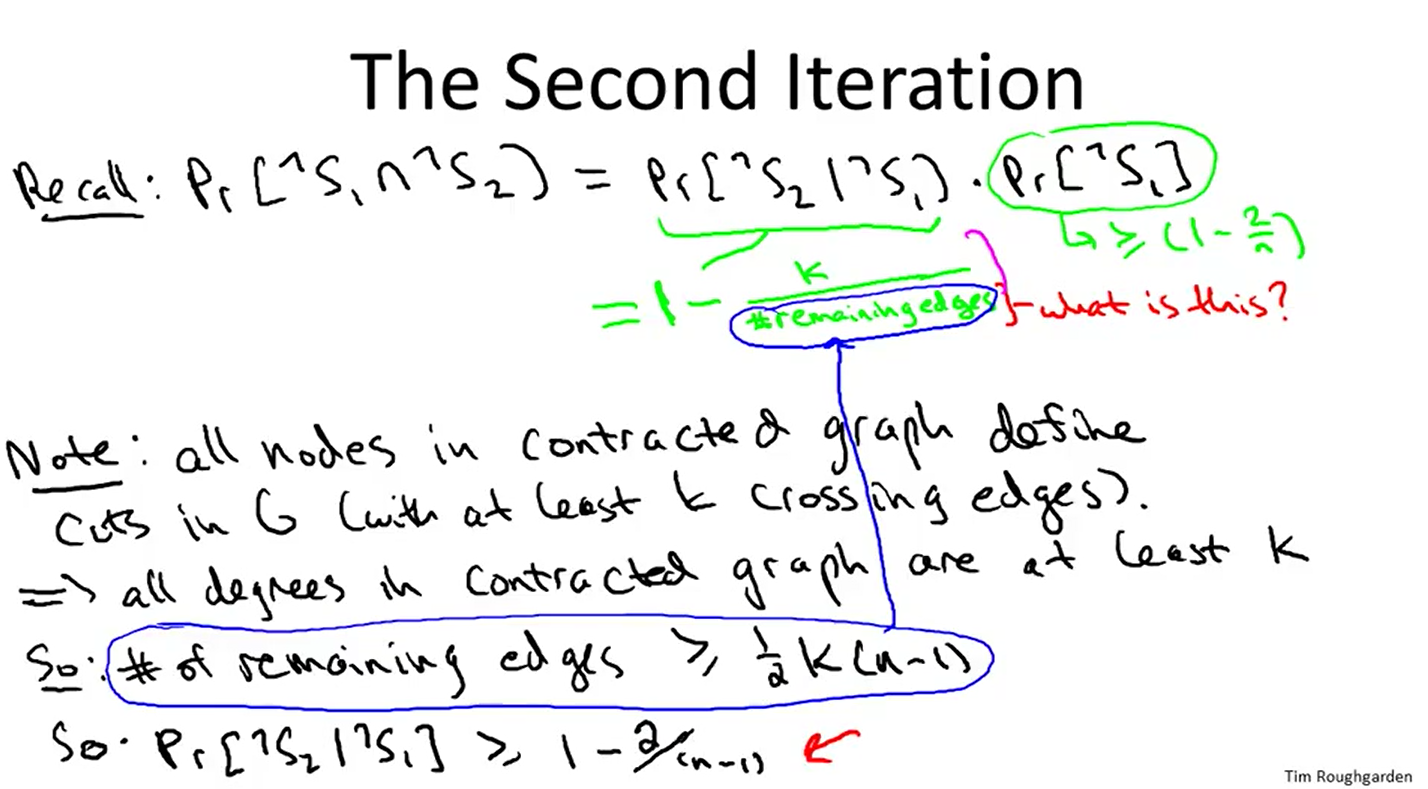 The Second Iteration
Recall: Pr[¬S₁ ∩ ¬S₂) = Pr[¬S₂ | ¬S₁) · Pr[¬S₁]
↳ ≥ (1 - 2/n)
= 1 - k / #remaining edges } - what is this?
Note: all nodes in contracted graph define
cuts in G (with at least k crossing edges).
=> all degrees in contracted graph are at least k
So: # of remaining edges ≥ ½ k(n-1)
So: Pr[¬S₂ | ¬S₁] ≥ 1 - 2/(n-1) ←
Tim Roughgarden